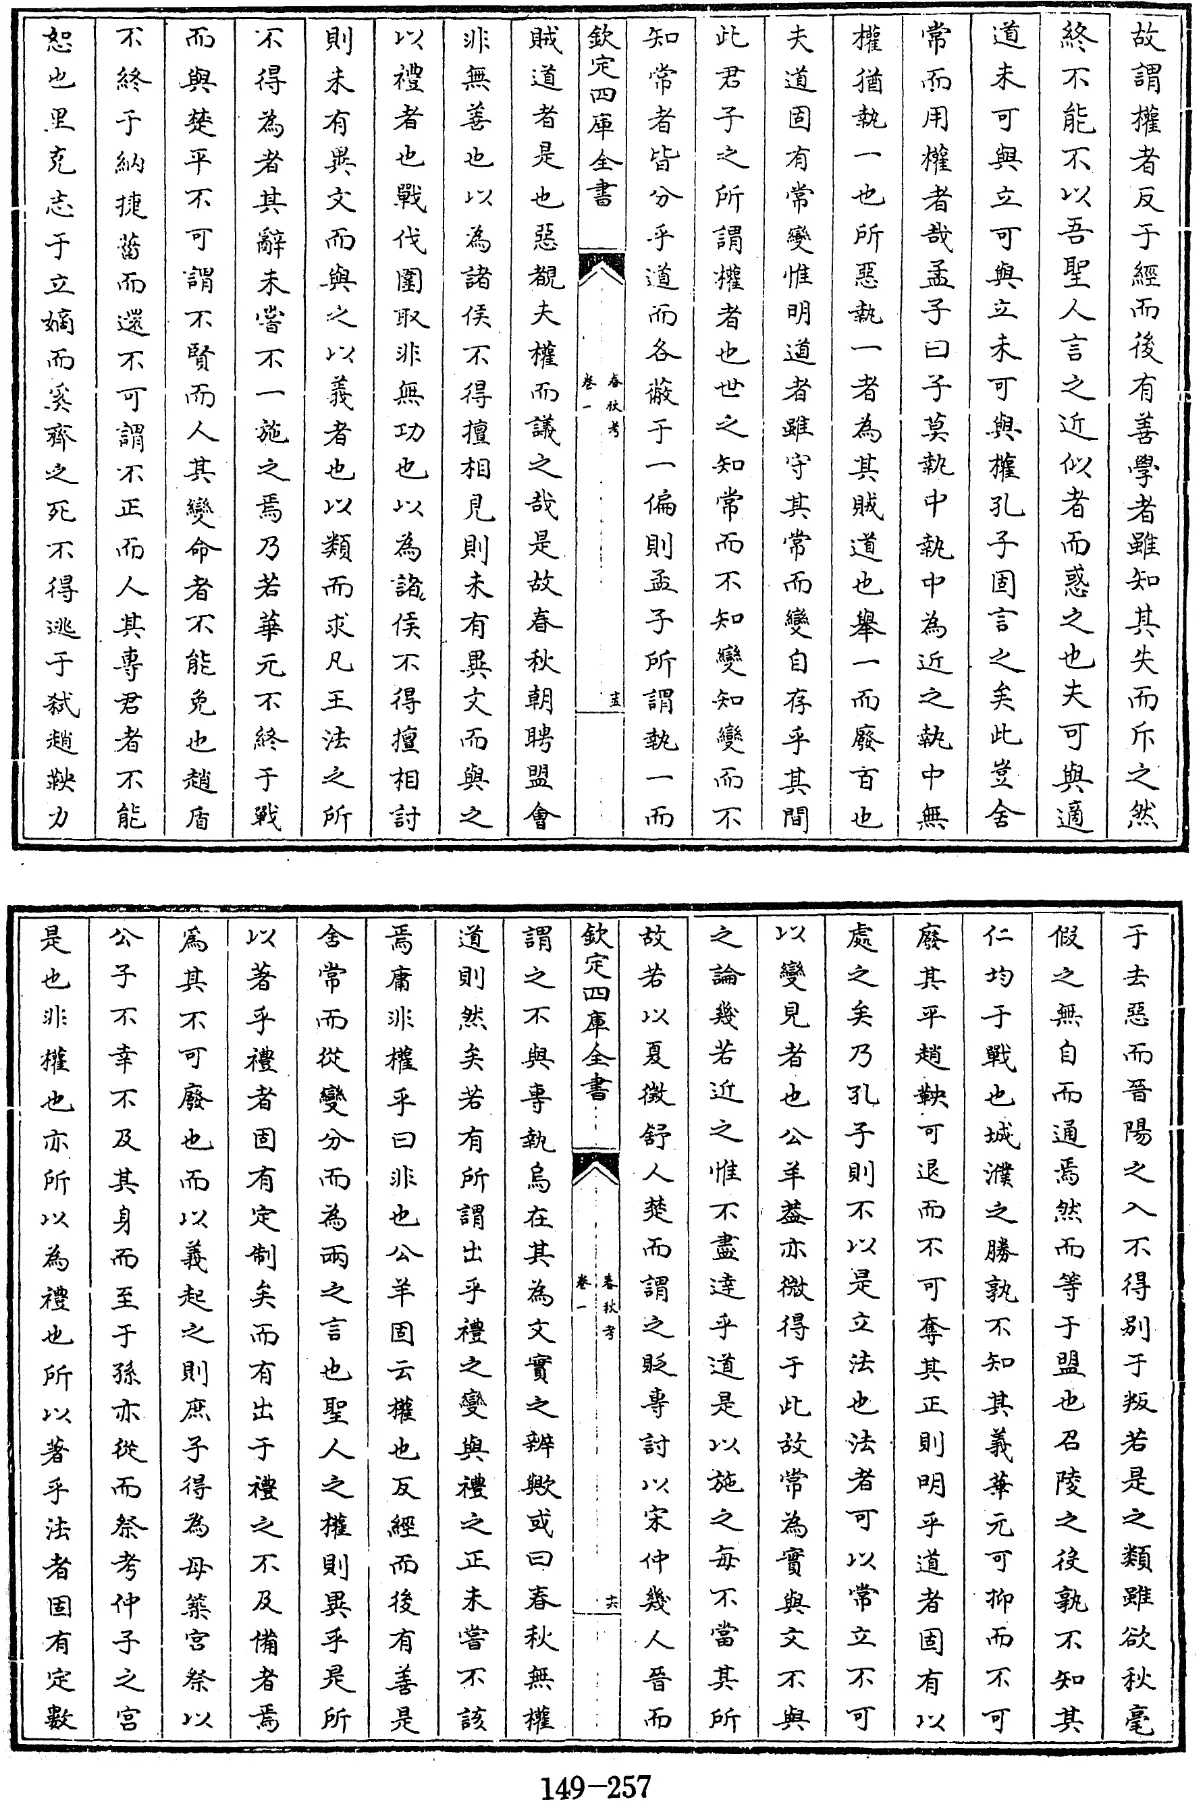 故謂權者反于經而後有善學者雖知其失而斥之然
終不能不以吾聖人言之近似者而惑之也夫可與適
道未可與立可與立未可與權孔子固言之矣此豈舍
常而用權者哉孟子曰子莫執中執中為近之執中無
權猶執一也所惡執一者為其賊道也舉一而廢百也
夫道固有常變惟明道者雖守其常而變自存乎其間
此君子之所謂權者也世之知常而不知變知變而不
知常者皆分乎道而各蔽于一偏則孟子所謂執一而
欽定四庫全書
春秋考
卷一
十五
賊道者是也惡覩夫權而議之哉是故春秋朝聘盟會
非無善也以為諸侯不得擅相見則未有異文而與之
以禮者也戰伐圍取非無功也以為諸侯不得擅相討
則未有異文而與之以義者也以類而求凡王法之所
不得為者其辭未嘗不一施之焉乃若華元不終于戰
而與楚平不可謂不賢而人其變命者不能免也趙盾
不終于納捷菑而還不可謂不正而人其專君者不能
恕也里克志于立嫡而奚齊之死不得逃于弑趙鞅力
于去惡而晉陽之入不得别于叛若是之類雖欲秋毫
假之無自而通焉然而等于盟也召陵之後孰不知其
仁均于戰也城濮之勝孰不知其義華元可抑而不可
廢其平趙鞅可退而不可奪其正則明乎道者固有以
處之矣乃孔子則不以是立法也法者可以常立不可
以變見者也公羊葢亦微得于此故常為實與文不與
之論幾若近之惟不盡達乎道是以施之每不當其所
故若以夏徵舒人楚而謂之貶專討以宋仲幾人晉而
欽定四庫全書
春秋考
卷一
十六
謂之不與專執烏在其為文實之辨歟或曰春秋無權
道則然矣若有所謂出乎禮之變與禮之正未嘗不該
焉庸非權乎曰非也公羊固云權也反經而後有善是
舍常而從變分而為兩之言也聖人之權則異乎是所
以著乎禮者固有定制矣而有出于禮之不及備者焉
為其不可廢也而以義起之則庶子得為母築宮祭以
公子不幸不及其身而至于孫亦從而祭考仲子之宮
是也非權也亦所以為禮也所以著乎法者固有定數
149-257